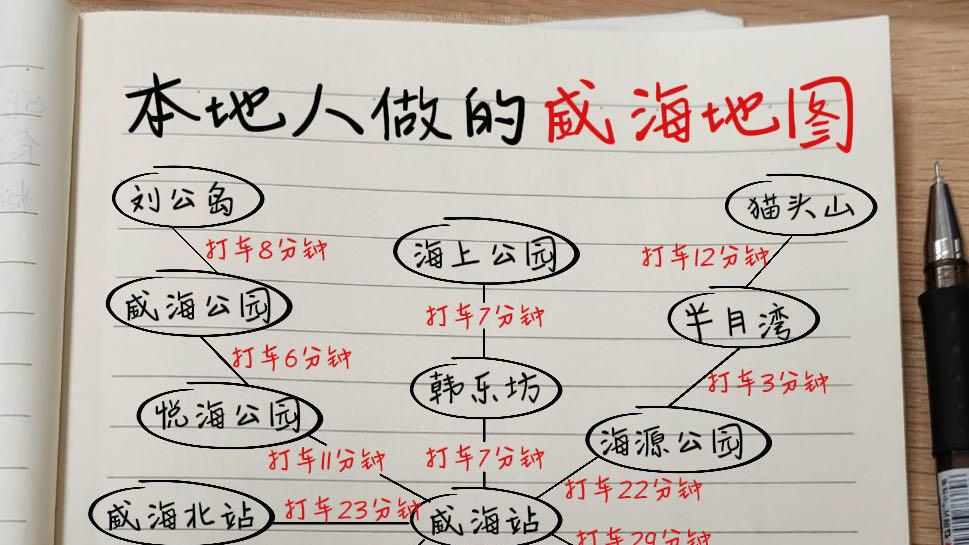 本地人做的威海地图
刘公岛
猫头山
打车8分钟
海上公园
打车12分钟
威海公园
打车7分钟
半月湾
打车6分钟
韩乐坊
打车3分钟
悦海公园
海源公园
打车11分钟
打车7分钟
打车22分钟
威海北站
打车23分钟
威海站
打车29分钟